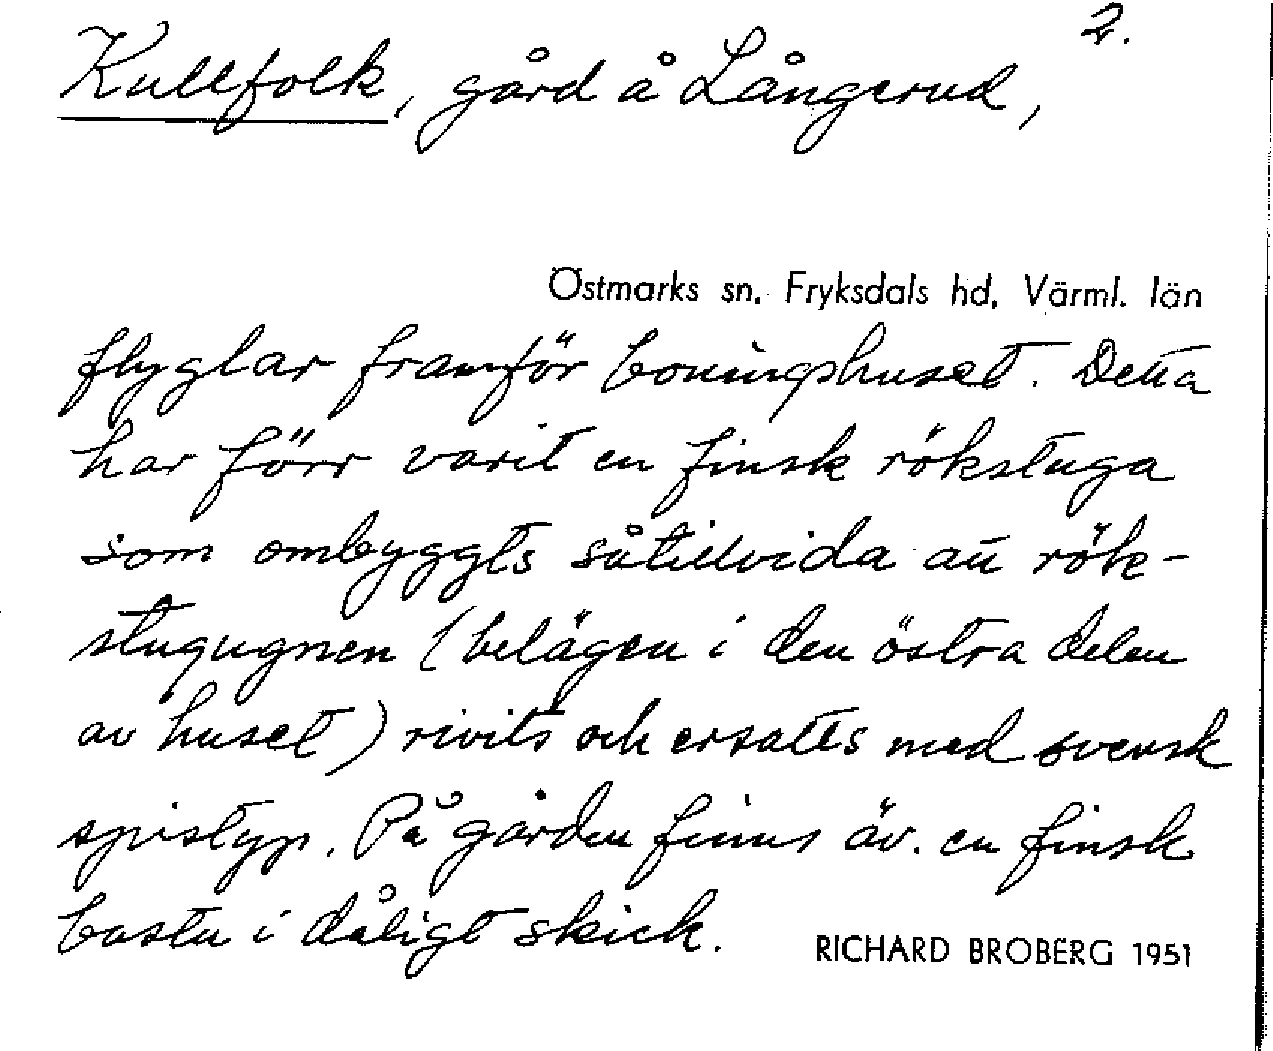 2.
Kullfolk, gård å Långerud,
Östmarks sn. Fryksdals hd, Värml. län
flyglar framför boningshuset. Detta
har förr varit en finsk rökstuga
som ombyggts såtillvida att rök-
stugugnen (belägen i den östra delen
av huset) rivits och ersatts med svensk
spistyp. På gården finns äv. en finsk
bastu i dåligt skick.
RICHARD BROBERG 1951